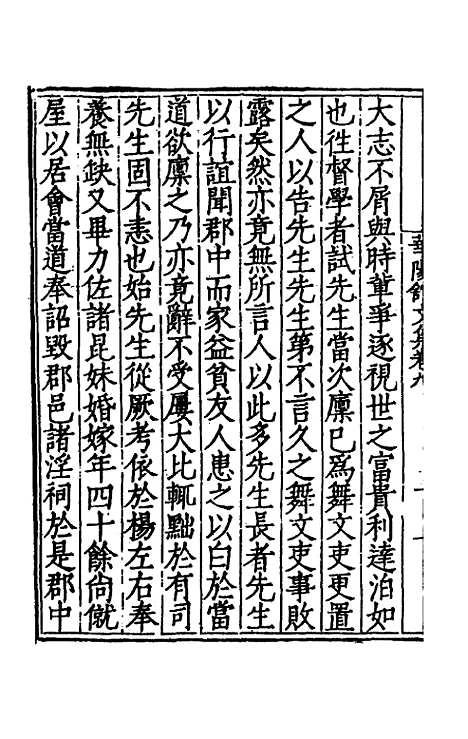 華陽館文集卷九
大志不屑與時輩爭逐視世之富貴利達泊如
也徃督學者試先生當次廩已爲舞文吏更置
之人以告先生先生第不言久之舞文吏事敗
露矣然亦竟無所言人以此多先生長者先生
以行誼聞郡中而家益貧友人患之以白於當
道欲廩之乃亦竟辭不受屢大比輒黜於有司
先生固不恚也始先生從厥考依於楊左右奉
養無缺又畢力佐諸昆妹婚嫁年四十餘尙僦
屋以居會當道奉詔毀郡邑諸淫祠於是郡中